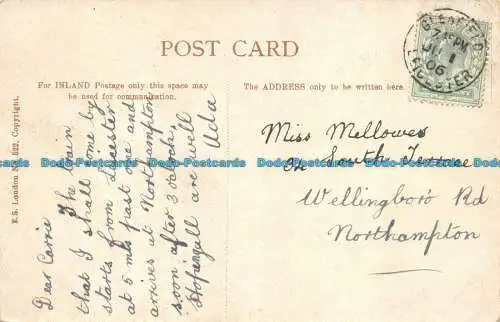 POST CARD
For INLAND Postage only this space may
be used for communication.
The ADDRESS only to be written here.
GLENFIELD
7 15 PM
JU 1
06
LEICESTER
E.S. London No. 522, Copyright.
Dear Carrie The train
that I shall come by
starts from Leicester
at 5 mts past one and
arrives at Northampton
soon after 3 oclock.
Hoping all are well
Miss Mellowes
South Terrace
Wellingboro' Rd
Northampton
Dodo-Postcards Dodo-Postcards Dodo-Postcards Dodo-Postcards